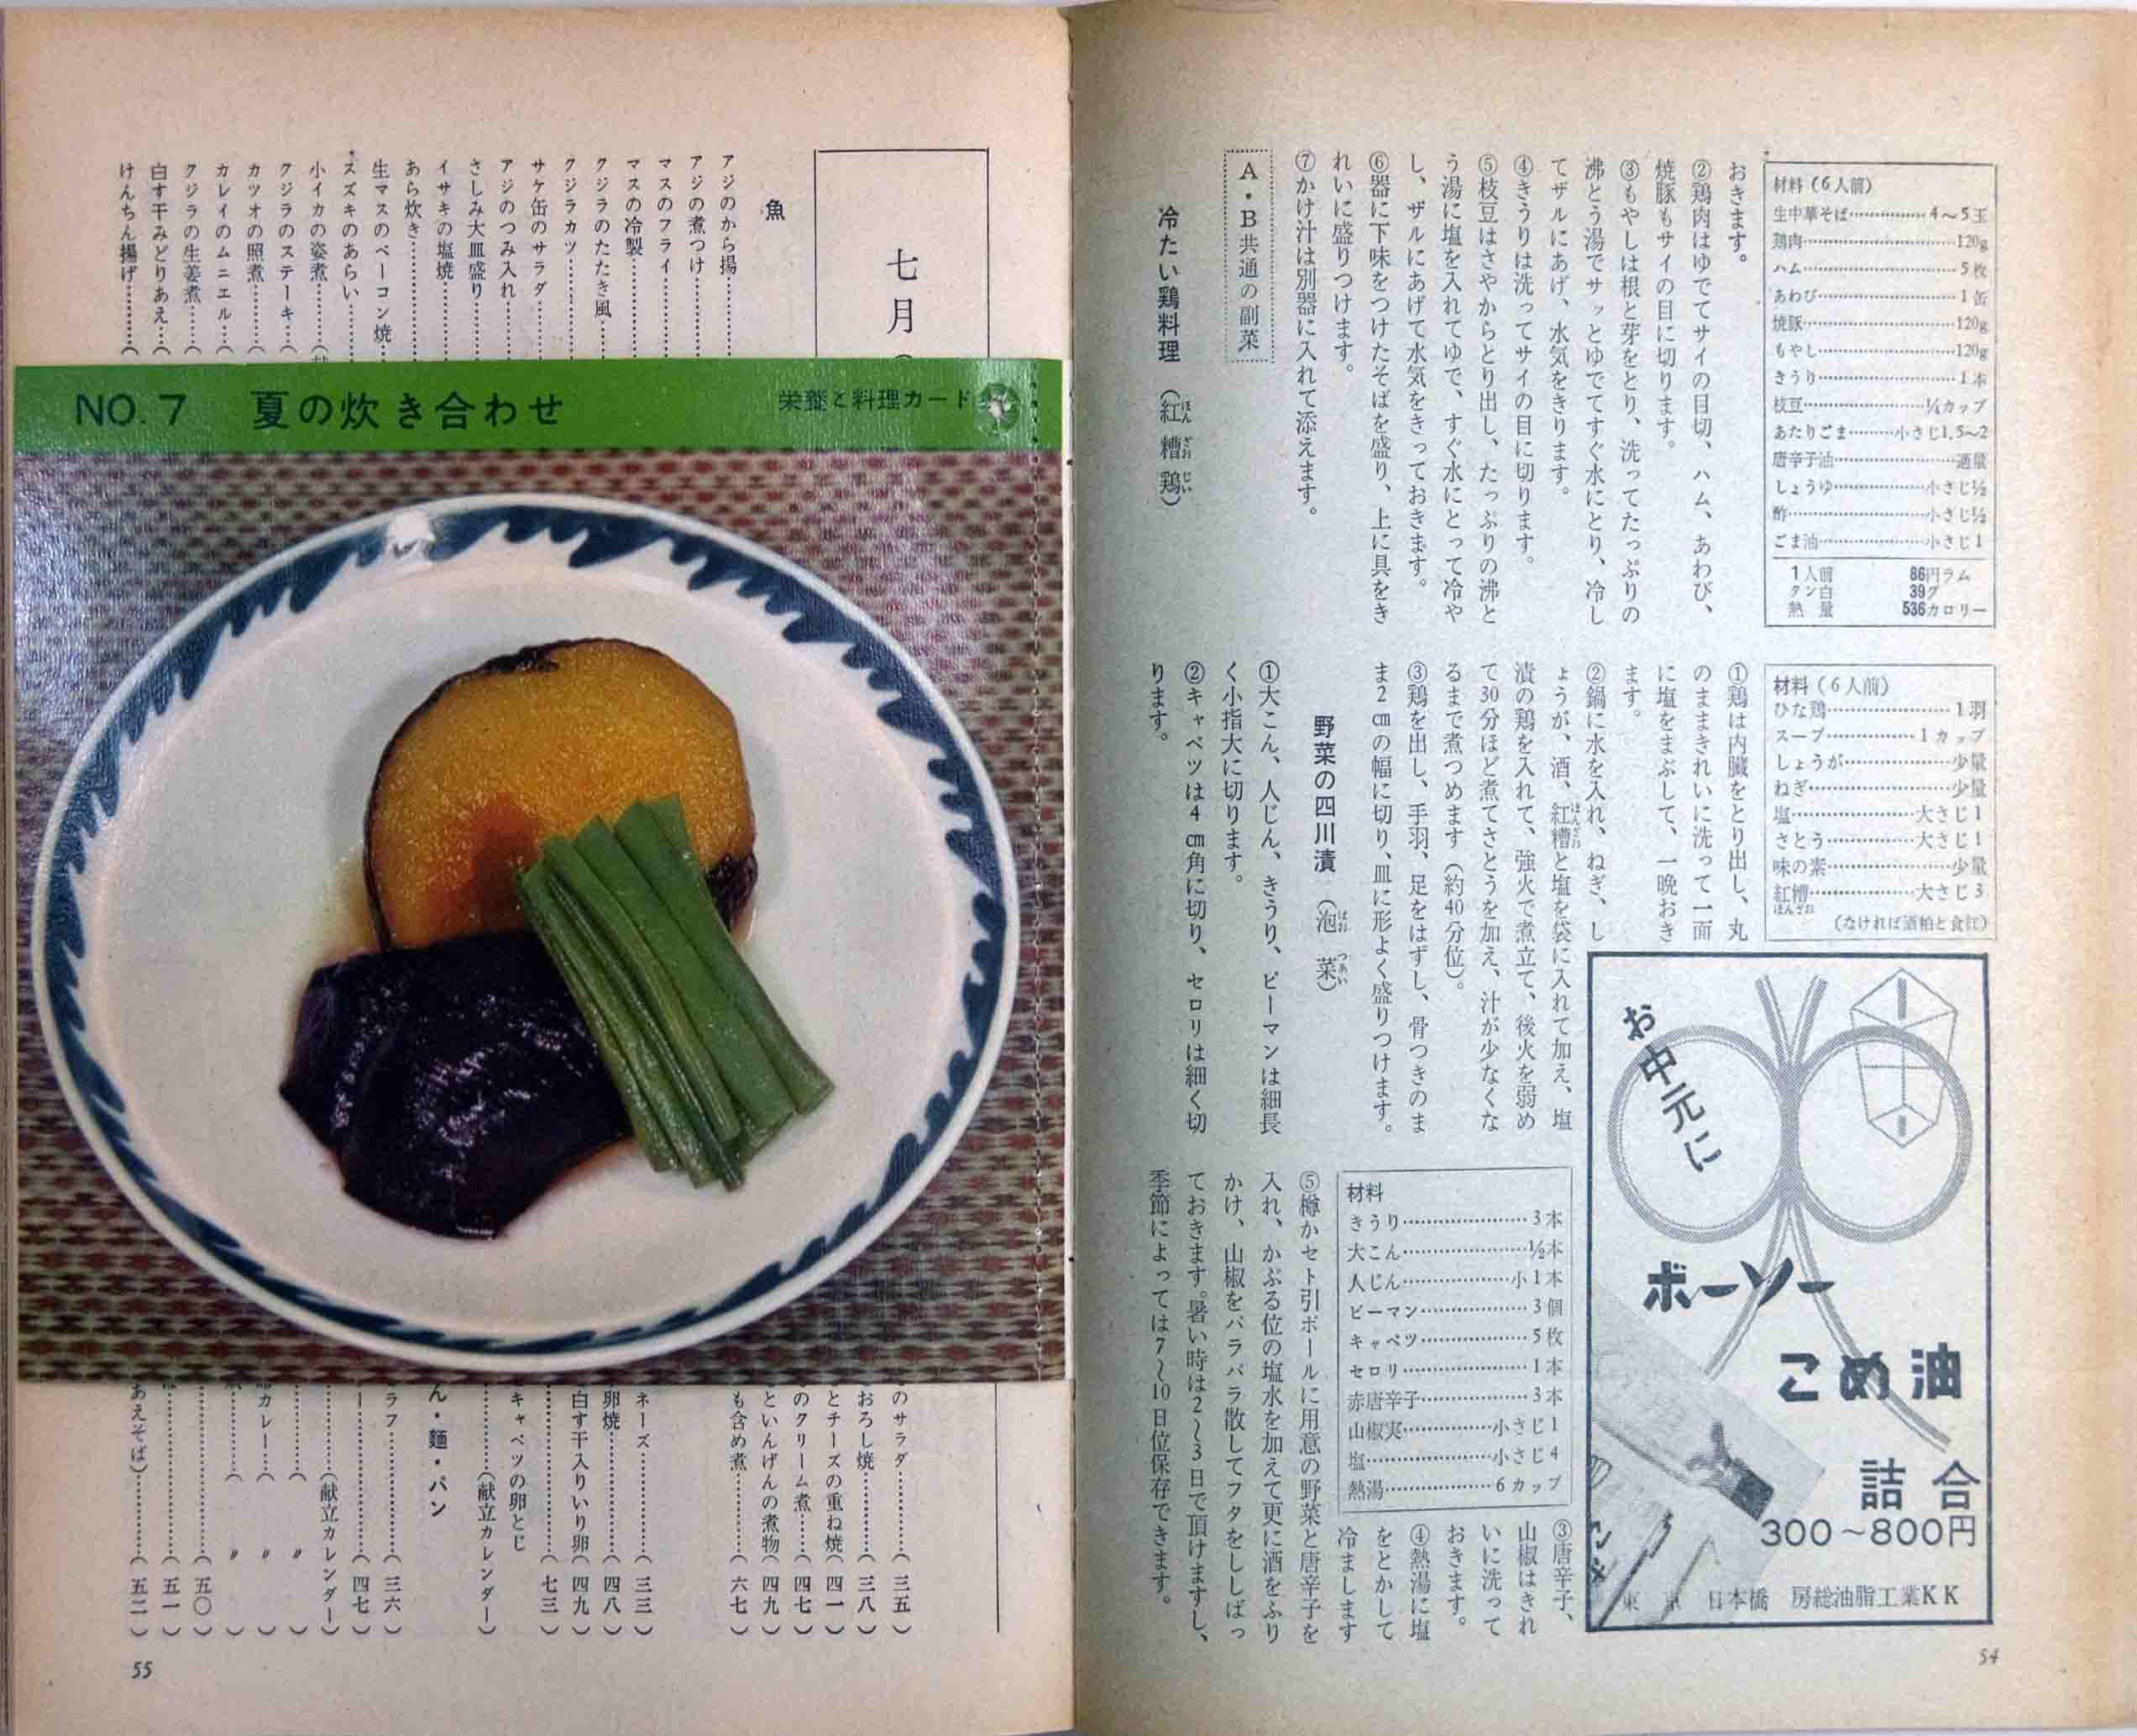 材料(6人前)
生中華そば…………4～5玉
鶏肉…………120g
ハム…………5枚
あわび…………1缶
焼豚…………120g
もやし…………120g
きうり…………1本
枝豆…………¼カップ
あたりごま…………小さじ1.5～2
唐辛子油…………適量
しょうゆ…………小さじ½
酢…………小さじ½
ごま油…………小さじ1
1人前 86円
タン白 39グラム
熱量 536カロリー
おきます。
②鶏肉はゆでてサイの目切、ハム、あわび、
焼豚もサイの目に切ります。
③もやしは根と芽をとり、洗ってたっぷりの
沸とう湯でサッとゆでてすぐ水にとり、冷し
てザルにあげ、水気をきります。
④きうりは洗ってサイの目に切ります。
⑤枝豆はさやからとり出し、たっぷりの沸と
う湯に塩を入れてゆで、すぐ水にとって冷や
し、ザルにあげて水気をきっておきます。
⑥器に下味をつけたそばを盛り、上に具をき
れいに盛りつけます。
⑦かけ汁は別器に入れて添えます。
A・B共通の副菜
冷たい鶏料理(紅糟鶏)
ほん ざお じい
材料(6人前)
ひな鶏…………1羽
スープ…………1カップ
しょうが…………少量
ねぎ…………少量
塩…………大さじ1
さとう…………大さじ1
味の素…………少量
紅槽…………大さじ3
ほんざお
(なければ酒粕と食紅)
①鶏は内臓をとり出し、丸
のままきれいに洗って一面
に塩をまぶして、一晩おき
ます。
②鍋に水を入れ、ねぎ、し
ょうが、酒、紅糟と塩を袋に入れて加え、塩
ほんざお
漬の鶏を入れて、強火で煮立て、後火を弱め
て30分ほど煮てさとうを加え、汁が少なくな
るまで煮つめます(約40分位)。
③鶏を出し、手羽、足をはずし、骨つきのま
ま2cmの幅に切り、皿に形よく盛りつけます。
野菜の四川漬(泡菜)
ぱお つあい
①大こん、人じん、きうり、ピーマンは細長
く小指大に切ります。
②キャベツは4cm角に切り、セロリは細く切
ります。
材料
きうり…………3本
大こん…………½本
人じん…………小1本
ピーマン…………3個
キャベツ…………5枚
セロリ…………1本
赤唐辛子…………3本
山椒実…………小さじ1
塩…………小さじ4
熱湯…………6カップ
③唐辛子、
山椒はきれ
いに洗って
おきます。
④熱湯に塩
をとかして
冷まします
⑤樽かセト引ボールに用意の野菜と唐辛子を
入れ、かぶる位の塩水を加えて更に酒をふり
かけ、山椒をパラパラ散してフタをししばっ
ておきます。暑い時は2～3日で頂けますし、
季節によっては7～10日位保存できます。
お中元に
ボーソー
こめ油
詰合
300～800円
東京 日本橋 房総油脂工業KK
54
七月
魚
アジのから揚…………
アジの煮つけ…………
マスのフライ…………
マスの冷製…………
クジラのたたき風…………
クジラカツ…………
サケ缶のサラダ…………
アジのつみ入れ…………
さしみ大皿盛り…………
イサキの塩焼…………
あら炊き…………
生マスのベーコン焼…………
スズキのあらい…………
小イカの姿煮…………(
クジラのステーキ…………(
カツオの照煮…………(
カレイのムニエル…………(
クジラの生姜煮…………(
白す干みどりあえ…………(
けんちん揚げ…………(
NO.7 夏の炊き合わせ
栄養と料理カード
のサラダ…………(三五)
おろし焼…………(三八)
とチーズの重ね焼(四一)
のクリーム煮…………(四七)
といんげんの煮物(四九)
も含め煮…………(六七)
ネーズ…………(三三)
卵焼…………(四八)
白す干入りいり卵(四九)
…………(七三)
キャベツの卵とじ
…………(献立カレンダー)
ん・麺・パン
ラフ…………(三六)
ー…………(四七)
…………(献立カレンダー)
…………( 〃 )
カレー…………( 〃 )
…………( 〃 )
…………(五〇)
…………(五一)
あえそば)…………(五二)
55